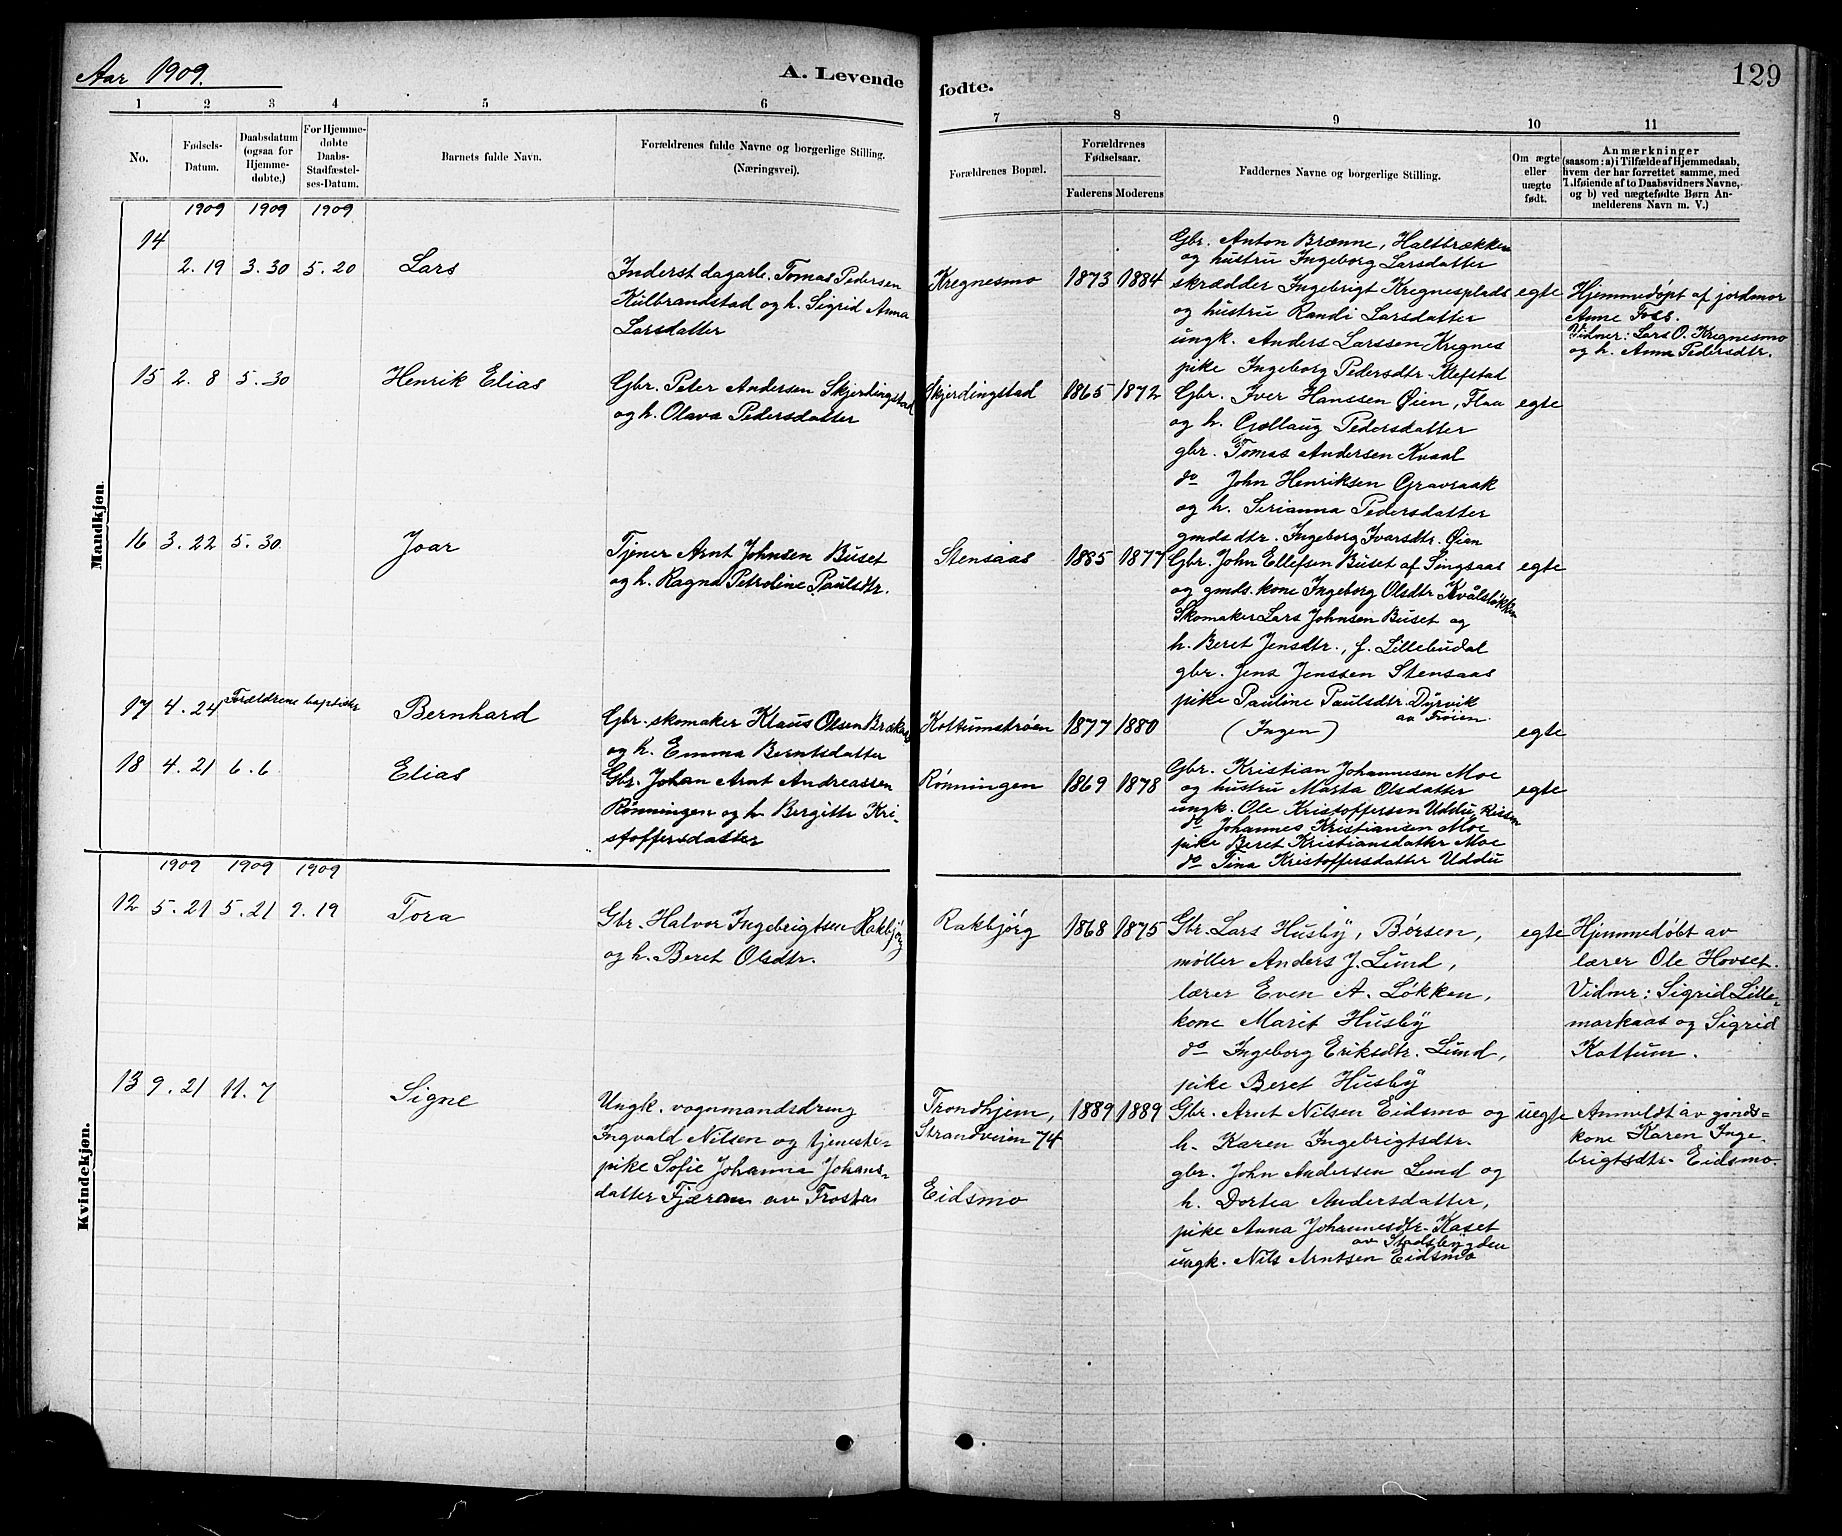 Aar 1909.
A. Levende
fødte.
129
1
2
3
4
5
6
7
8
9
10
11
No.
Fødsels-
Datum.
Daabsdatum
(ogsaa for
Hjemme-
døbte,)
For Hjemme-
døbte
Daabs-
Stadfæstel-
ses-Datum.
Barnets fulde Navn.
Forældrenes fulde Navne og borgerlige Stilling.
(Næringsvei).
Forældrenes Bopæl.
Forældrenes
Fødselsaar.
Faderens
Moderens
Faddernes Navne og borgerlige Stilling.
Om ægte
eller
uægte
født.
Anmærkninger
(saasom: a) i Tilfælde af Hjemmedaab,
hvem der har forrettet samme, med
Tilføiende af to Daabsvidners Navne,
og b) ved uægtefødte Børn An-
melderens Navn m. V.)
Mandkjøn.
1909 1909 1909
14
2. 19 3. 30 5. 20 Lars
Inderst dagarb. Tomas Pedersen
Kulbrandstad og h. Sigrid Anna
Larsdatter
Kregnesmo 1873 1884
Gbr. Anton Brænne, Haltbrækken
og hustru Ingeborg Larsdatter
skrædder Ingebrigt Kregnesplads
og hustru Randi Larsdatter
ungk. Anders Larssen Kregnes
pike Ingeborg Pedersdtr. Klefstad
egte
Hjemmedøpt af jordmor
Anne Foss.
Vidner: Lars O. Kregnesmo
og h. Anna Pedersdtr.
15 2. 8 5. 30 Henrik Elias
Gbr. Peter Andersen Skjerdingstad
og h. Olava Pedersdatter
Skjerdingstad 1865 1872
Gbr. Iver Hanssen Øien, Flaa
og h. Gollaug Pedersdatter
gbr. Tomas Andersen Kvaal
do John Henriksen Gravraak
og h. Serianna Pedersdatter
gmds dtr. Ingeborg Ivarsdtr. Øien
egte
16 3. 22 5. 30 Joar
Tjener Arnt Johnsen Buset
og h. Ragna Petroline Paulsdtr.
Stensaas 1885 1877
Gbr. John Ellefsen Buset af Singsaas
og gmds. kone Ingeborg Olsdtr Kvålsløkken
Skomaker Lars Johnsen Buset og
h. Beret Jensdtr., f. Lillebudal
gbr. Jens Jenssen Stensaas
pike Pauline Paulsdtr Dyrvik
av Frøien.
egte
17 4. 24 Forældrene baptister Bernhard
Gbr. skomaker Klaus Olsen
og h. Emma Berntsdatter
Kottumstrøen 1877 1880
(Ingen)
egte
18 4. 21 6. 6 Elias
Gbr. Johan Arnt Andreassen
Rønningen og h Bergitte Kri-
stoffersdatter
Rønningen 1869 1878
Gbr. Kristian Johannesen Moe
og hustru Marta Olsdatter
ungk. Ole Kristoffersen Uddu, Reisen
do Johannes Kristiansen Moe
pike Beret Kristiansdatter Moe
do Tina Kristoffersdatter Uddu
egte
Kvindekjøn.
1909 1909 1909
12 5. 21 5. 21 9. 19 Tora
Gbr. Halvor Ingebrigtsen Rakbjörg
og h. Beret Olsdtr.
Rakbjørg 1868 1875
Gbr. Lars Husby, Børsen,
møller Anders J. Lund,
lærer Even A. Løkken,
kone Marit Husby
do Ingeborg Eriksdtr. Lund,
pike Beret Husby
egte
Hjemmedøbt av
lærer Ole Hovset.
Vidner: Sigrid Lille-
markaas og Sigrid
Kottum.
13 9. 21 11. 7 Signe
Ungk. vognmandsdreng
Ingvald Nilsen og tjeneste-
pike Sofie Johanna Johans-
datter Fjæran av Frosta
Trondhjem,
Strandveien 74
Eidsmo
1889 1889
Gbr. Arnt Nilsen Eidsmo og
h. Karen Ingebrigtsdtr.
gbr. John Andersen Lund og
h. Dortea Andersdatter,
pike Anna Johannesdtr. Kaset
av Stadsbygden
ungk. Nils Arntsen Eidsmo
uegte
Anmeldt av gmds-
kone Karen Inge-
brigtsdtr. Eidsmo.